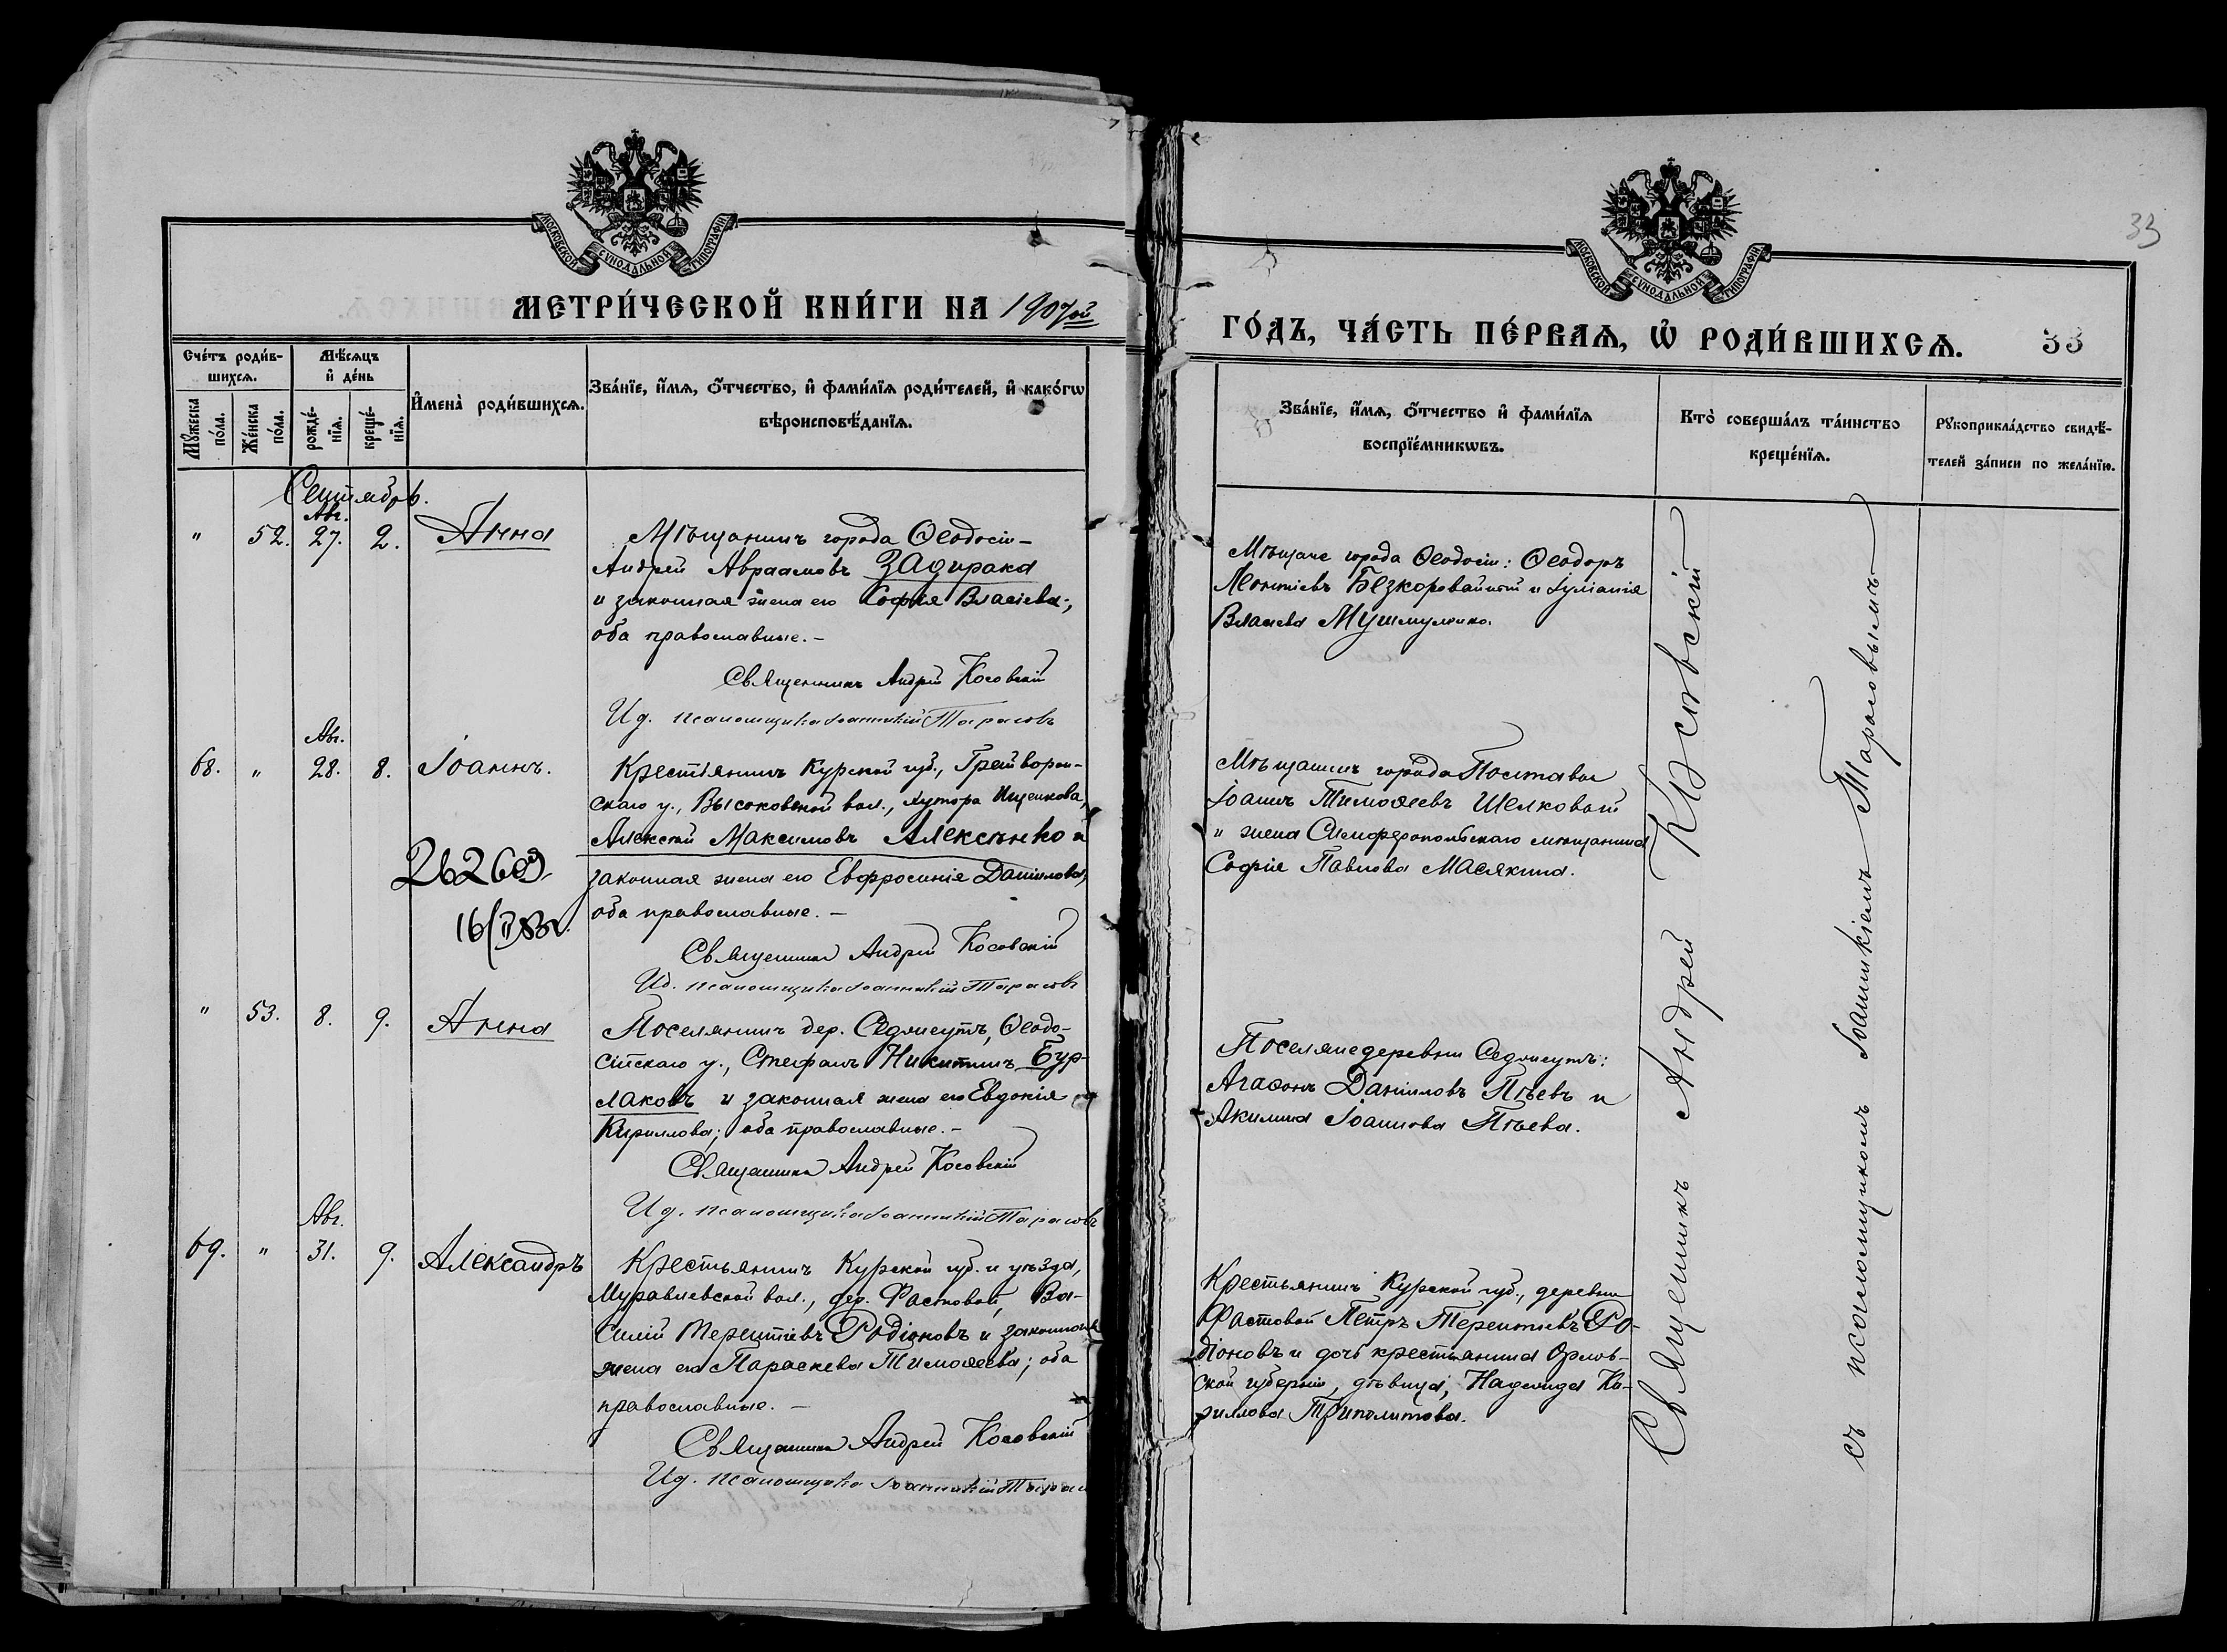 МОСКОВСКОЙ СУНОДАЛЬНОЙ ТИПОГРАФІИ
МЕТРИ́ЧЕСКОЙ КНИ́ГИ НА 1907ой
Сче́тъ роди́в-
шихсѧ.
Мꙋ́жеска по́ла.
Же́нска по́ла.
Мѣ́сѧцъ
и҆ де́нь
рожде́-
нїѧ.
креще́-
нїѧ.
И҆мена̀ роди́вшихсѧ.
Зва́нїе, и҆́мѧ, ѻ҆́тчество, и҆ фамі́лїѧ роди́телей, и҆ како́гѡ
вѣроисповѣ́данїѧ.
Сентябрь.
Авг.
" 52. 27. 2. Анна
Мѣщанинъ города Ѳеодосіи –
Андрей Авраамовъ Задирака
и законная жена его Софія Власіева;
оба православные. –
Священникъ Андрей Косовскій
И д. псаломщика Іоанникій Тарасовъ
Авг.
68. " 28. 8. Іоаннъ.
Крестьянинъ Курской губ., Грайворон-
скаго у., Высоковской вол., хутора Ищенкова,
Алексѣй Максимовъ Алексѣнко и
законная жена его Евфросинія Даніилова,
оба православные. –
Священникъ Андрей Косовскій
И д. псаломщика Іоанникій Тарасовъ
" 53. 8. 9. Анна
Поселянинъ дер. Седжеутъ, Ѳеодо-
сійскаго у., Стефанъ Никитинъ Бур-
лаковъ и законная жена его Евдокія
Кириллова; оба православные. –
Священникъ Андрей Косовскій
И д. псаломщика Іоанникій Тарасовъ
Авг.
69. " 31. 9. Александръ
Крестьянинъ Курской губ. и уѣзда,
Муравлевской вол., дер. Фастовой, Ва-
силій Терентіевъ Родіоновъ и законная
жена его Параскева Тимоѳеева; оба
православные. –
Священникъ Андрей Косовскій
И д. псаломщика Іоанникій Тарас
33
МОСКОВСКОЙ СУНОДАЛЬНОЙ ТИПОГРАФІИ
ГО́ДЪ, ЧА́СТЬ ПЕ́РВАѦ, Ѡ҆ РОДИ́ВШИХСѦ. 33
Зва́нїе, и҆́мѧ, ѻ҆́тчество и҆ фамі́лїѧ
воспрїе́мникѡвъ.
Кто̀ соверша́лъ та́инство
креще́нїѧ.
Рꙋкоприкла́дство свидѣ́-
телей за́писи по жела́нїю.
Мѣщане города Ѳеодосіи: Ѳеодоръ
Леонтіевъ Безкоровайный и Іуліанія
Власіева
Мѣщанинъ города
Іоаннъ Тимоѳеевъ Шелковой
и жена Симферопольскаго мѣщанина
Софія Павлова Масякина.
Поселяне деревни Седжеутъ:
Агаѳонъ Даніиловъ Пѣевъ и
Акилина Іоаннова Пѣева.
Крестьянинъ Курской губ., деревни
Фастовой Петръ Терентіевъ Ро-
діоновъ и дочь крестьянина Орлов-
ской губерніи, дѣвица, Надежда Ки-
риллова Триполитова.
Священникъ Андрей Косовскій
съ псаломщикомъ Іоанникіемъ Тарасовымъ